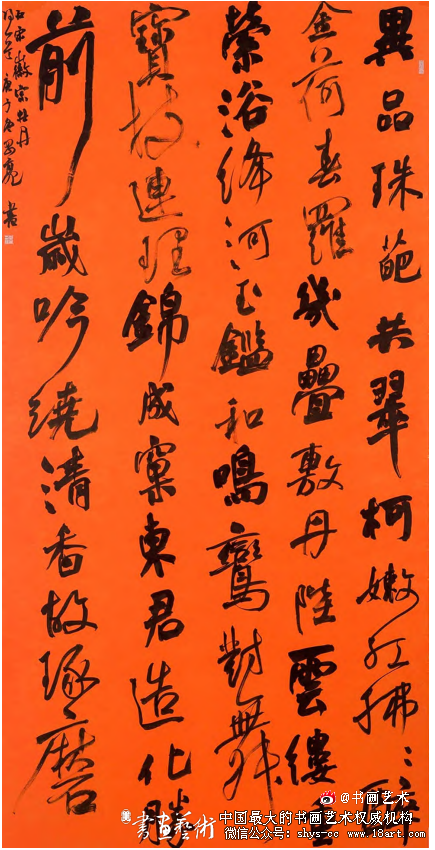 異品珠葩共翠柯嫩紅拂々醉
金荷春羅幾疊敷丹陛雲縷重
榮浴絳河玉鑑和鳴鸞對舞
寶枝連理錦成窠東君造化勝
前歲吟繞清香故琢磨
宋徽宗牡丹
庚子冬
書
@书画艺术
書畫藝術
中国最大的书画艺术权威机构
微信公众号：shys-cc www.18art.com